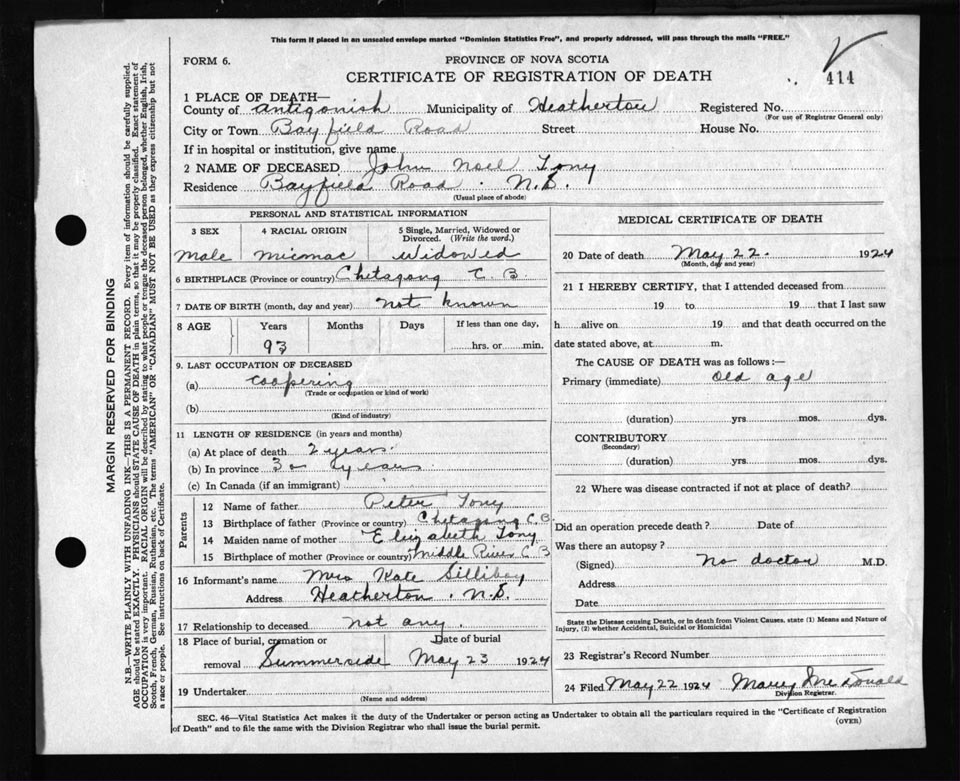 This form if placed in an unsealed envelope marked "Dominion Statistics Free", and properly addressed, will pass through the mails "FREE."
FORM 6.
PROVINCE OF NOVA SCOTIA
CERTIFICATE OF REGISTRATION OF DEATH
414
1 PLACE OF DEATH—
County of Antigonish Municipality of Heatherton Registered No.
(For use of Registrar General only)
City or Town Bayfield Road Street House No.
If in hospital or institution, give name
2 NAME OF DECEASED John Noel Tony
Residence Bayfield Road. N.S.
(Usual place of abode)
PERSONAL AND STATISTICAL INFORMATION
3 SEX 4 RACIAL ORIGIN 5 Single, Married, Widowed or Divorced. (Write the word.)
Male Micmac Widowed
6 BIRTHPLACE (Province or country) Chetagong C. B
7 DATE OF BIRTH (month, day and year) not known
8 AGE Years Months Days If less than one day,
93 hrs. or min.
9. LAST OCCUPATION OF DECEASED
(a) Coopering
(Trade or occupation or kind of work)
(b)
(Kind of industry)
11 LENGTH OF RESIDENCE (in years and months)
(a) At place of death 2 years.
(b) In province 30 years
(c) In Canada (if an immigrant)
Parents
12 Name of father Peter Tony
13 Birthplace of father (Province or country) Chetagong C.B
14 Maiden name of mother Elizabeth Tony
15 Birthplace of mother (Province or country) Middle River C B
16 Informant's name Mrs Kate Silliboy
Address Heatherton. N.S.
17 Relationship to deceased not any
18 Place of burial, cremation or removal Date of burial
Summerside May 23 1924
19 Undertaker
(Name and address)
MEDICAL CERTIFICATE OF DEATH
20 Date of death May 22. 1924
(Month, day and year)
21 I HEREBY CERTIFY, that I attended deceased from
19 to 19 that I last saw
h alive on 19 and that death occurred on the
date stated above, at m.
The CAUSE OF DEATH was as follows:—
Primary (immediate) Old age
(duration) yrs. mos. dys.
CONTRIBUTORY
(Secondary)
(duration) yrs. mos. dys.
22 Where was disease contracted if not at place of death?
Did an operation precede death? Date of
Was there an autopsy?
(Signed) No doctor M.D.
Address
Date
State the Disease causing Death, or in death from Violent Causes, state (1) Means and Nature of
Injury, (2) whether Accidental, Suicidal or Homicidal
23 Registrar's Record Number
24 Filed May 22 1924 Mary McDonald
Division Registrar.
SEC. 46—Vital Statistics Act makes it the duty of the Undertaker or person acting as Undertaker to obtain all the particulars required in the "Certificate of Registration
of Death" and to file the same with the Division Registrar who shall issue the burial permit.
(OVER)
MARGIN RESERVED FOR BINDING
N.B.—WRITE PLAINLY WITH UNFADING INK—THIS IS A PERMANENT RECORD. Every item of information should be carefully supplied.
AGE should be stated EXACTLY. PHYSICIANS should STATE CAUSE OF DEATH in plain terms, so that it may be properly classified. Exact statement of
OCCUPATION is very important. RACIAL ORIGIN will be described by stating to what people or tongue the deceased person belonged, whether English, Irish,
Scotch, French, German, Russian, Ruthenian, etc. The terms "AMERICAN" OR "CANADIAN" MUST NOT BE USED as they express citizenship but not
a race or people. See instructions on back of Certificate.